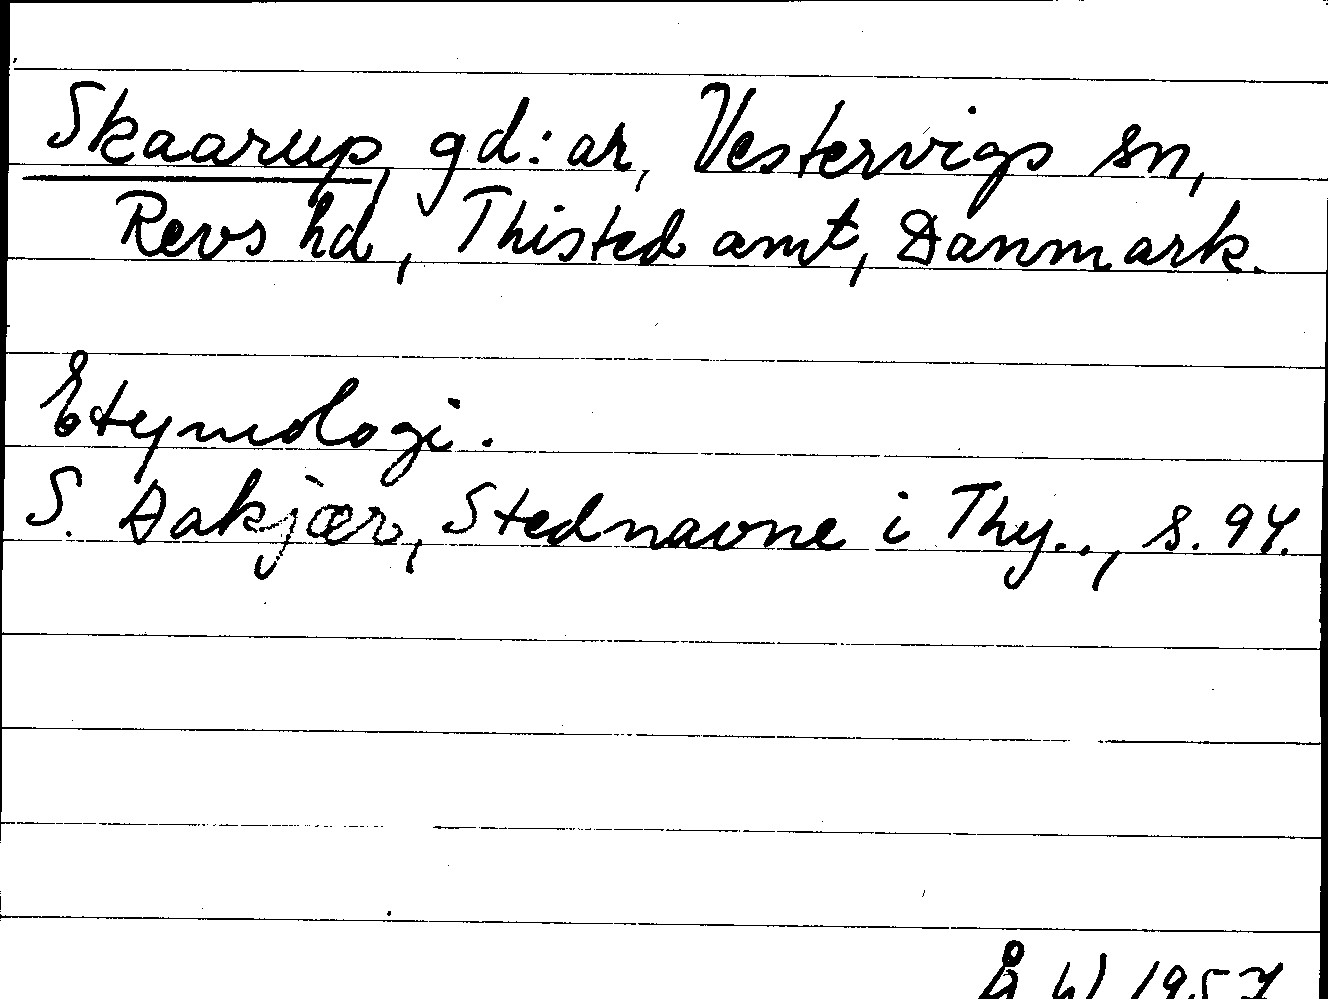 Skaarup, gd:ar, Vestervigs sn,
Revs hd, Thisted amt, Danmark.
Etymologi.
S. Aakjær, Stednavne i Thy.., s. 94.
1957